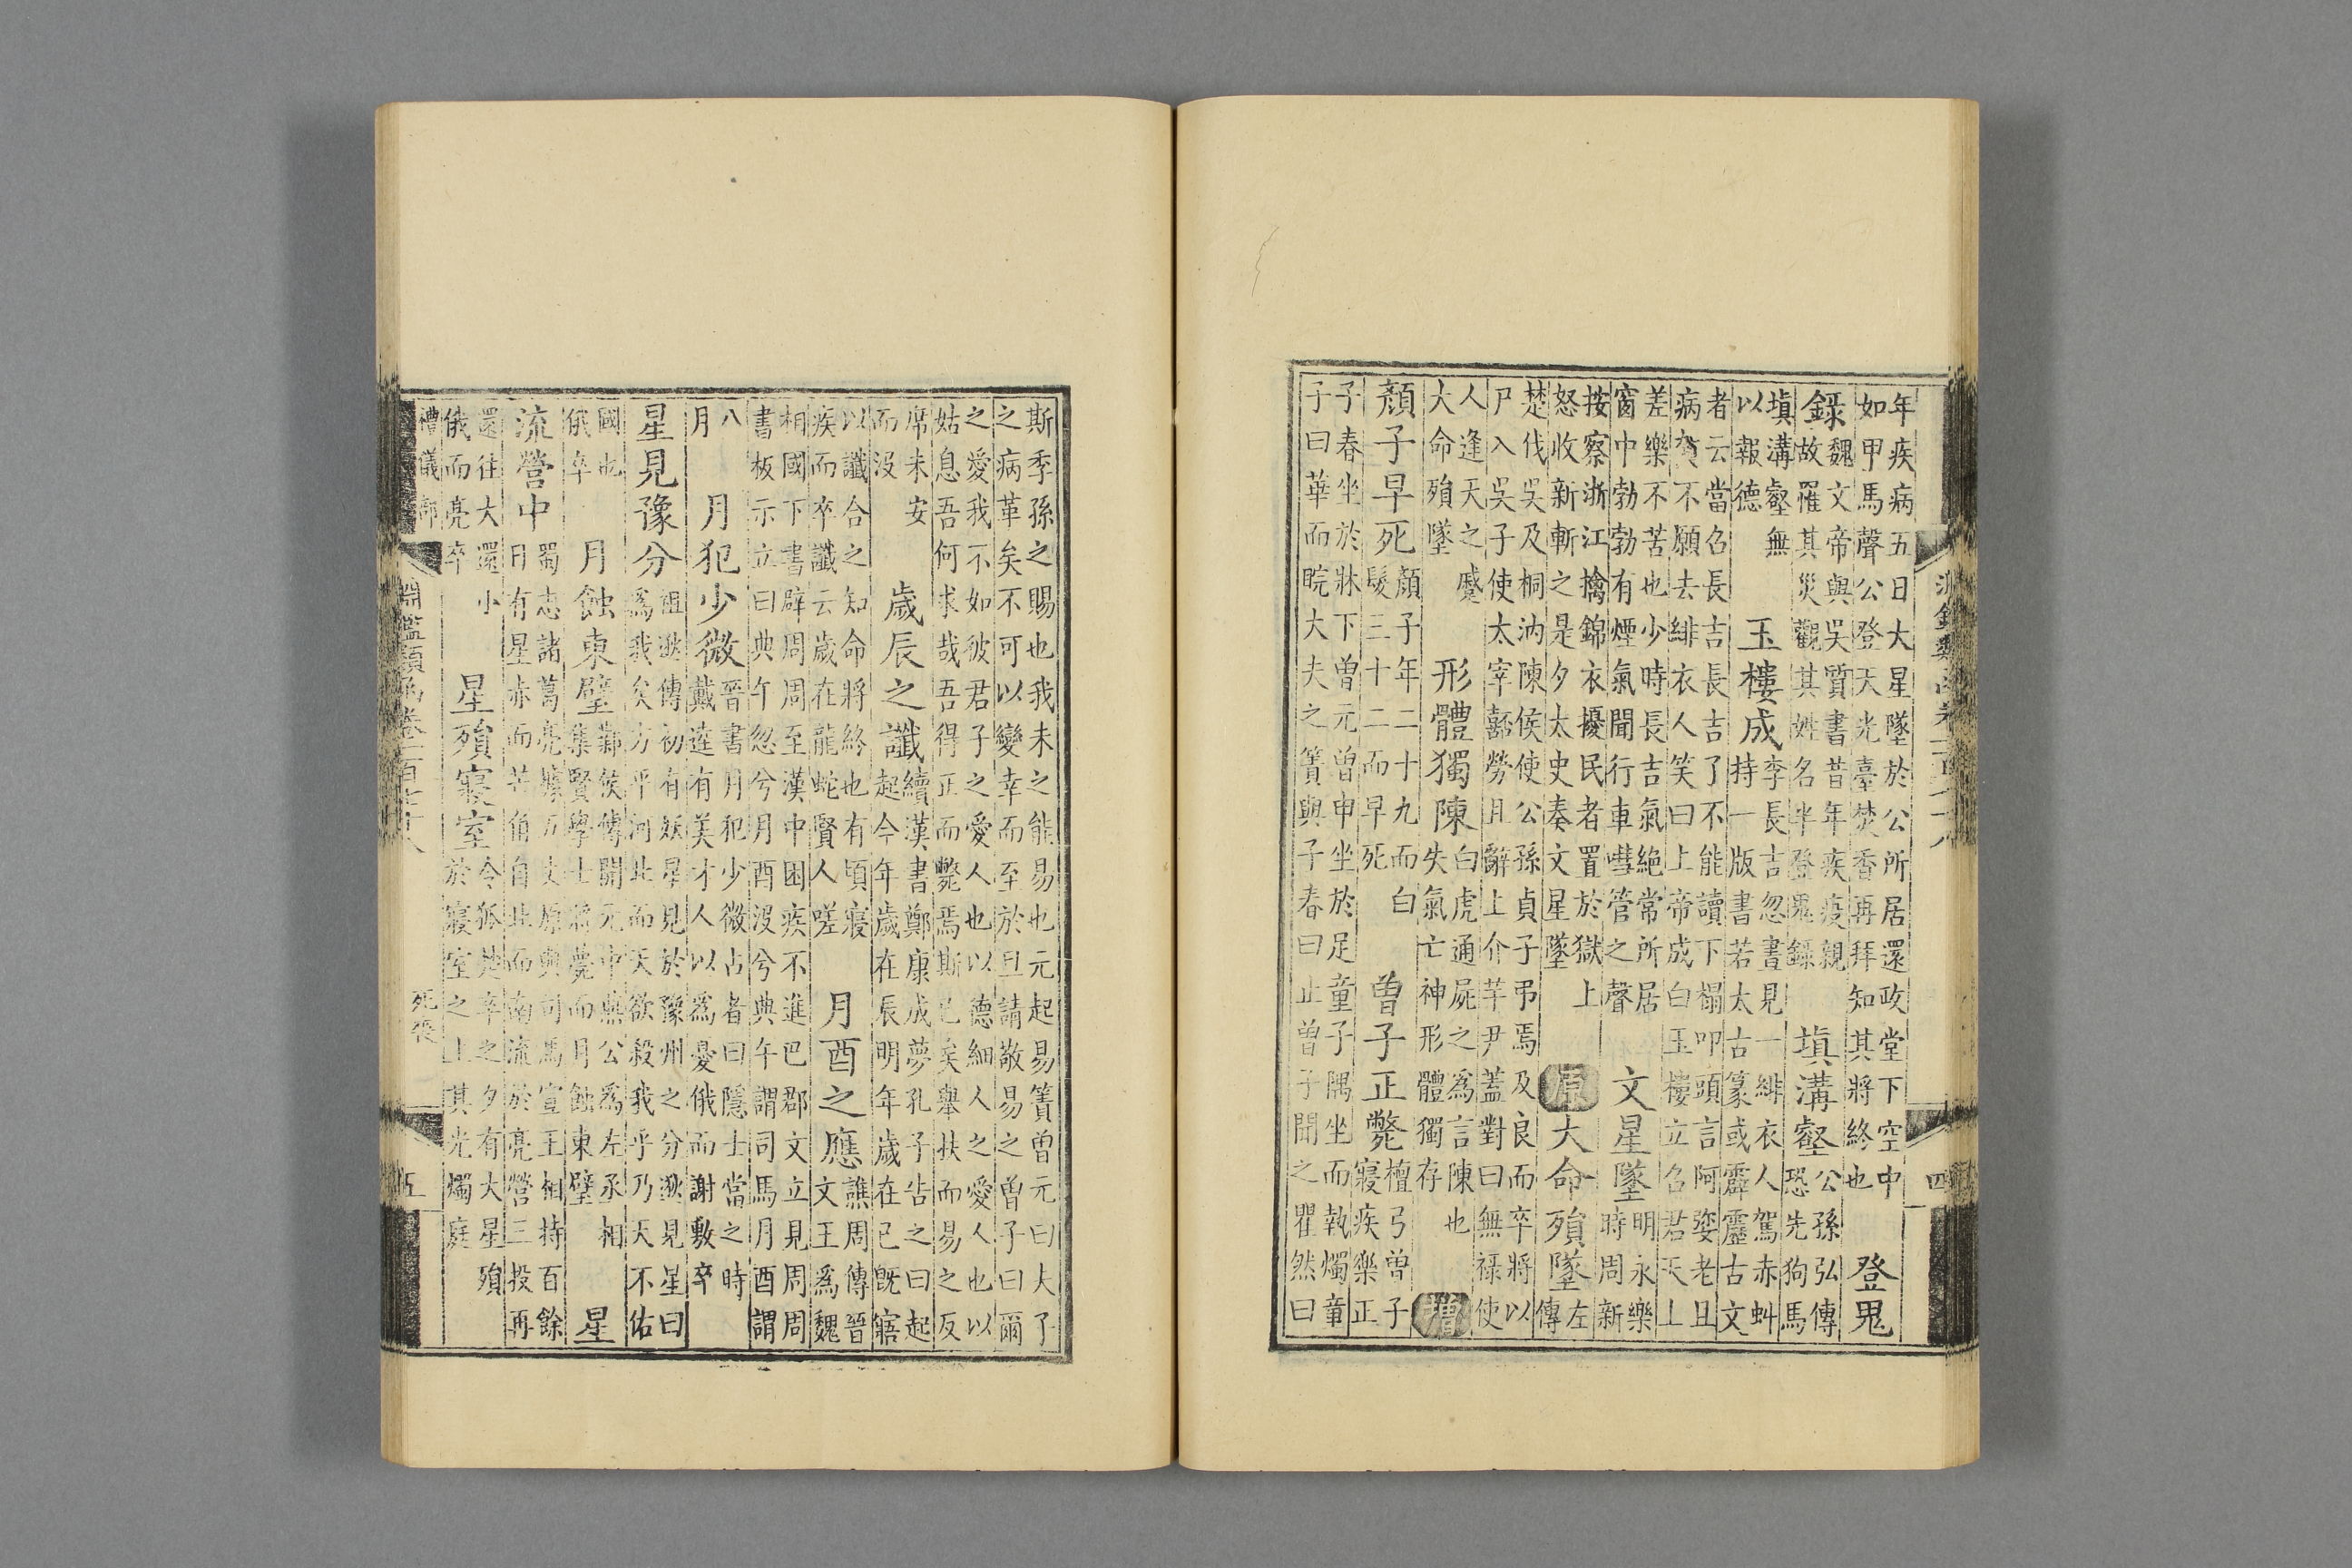 年疾病五日大星墜於公所居還政堂下空中
如甲馬聲公登天光臺焚香再拜知其將終也
登鬼
錄
魏文帝與吳質書昔年疾疫親
故罹其災觀其姓名半登鬼錄
填溝壑
公孫弘傳
恐先狗馬
填溝壑無
以報德
玉樓成
李長吉忽晝見一緋衣人駕赤虯
持一版書若太古篆或霹靂古文
者云當召長吉長吉了不能讀下榻叩頭言阿㜷老且
病不願去緋衣人笑曰上帝成白玉樓立召君天上
差樂不苦也少時長吉氣絕常所居
窗中勃勃有煙氣聞行車嘒管之聲
文星墜
明永樂
時周新
按察浙江擒錦衣擾民者置於獄上
怒收新斬之是夕太史奏文星墜
原
大命殞墜
左
傳
楚伐吳及桐汭陳侯使公孫貞子弔焉及良而卒將以
尸入吳子使太宰嚭勞且辭上介芋尹蓋對曰無祿使
人逢天之慼
大命殞墜
形體獨陳
白虎通屍之為言陳也
失氣亡神形體獨存
增
顏子早死
顏子年二十九而白
髮三十二而早死
曾子正斃
檀弓曾子
寢疾樂正
子春坐於牀下曾元曾申坐於足童子隅坐而執燭童
子曰華而睆大夫之簀與子春曰止曾子聞之瞿然曰
四
斯季孫之賜也我未之能易也元起易簀曾元曰夫子
之病革矣不可以變幸而至於旦請敬易之曾子曰爾
之愛我不如彼君子之愛人也以德細人之愛人也以
姑息吾何求哉吾得正而斃焉斯已矣舉扶而易之反
席未安
而沒
歲辰之讖
續漢書鄭康成夢孔子告之曰起
起今年歲在辰明年歲在巳既寤
以讖合之知命將終也有頃寢
疾而卒讖云歲在龍蛇賢人嗟
月酉之應
譙周傳晉
文王為魏
相國下書辟周周至漢中困疾不進巴郡文立見周周
書板示立曰典午忽兮月酉沒兮典午謂司馬月酉謂
八
月
月犯少微
晉書月犯少微占者曰隱士當之時
戴逵有美才人以為憂俄而謝敷卒
星見豫分
祖逖傳初有妖星見於豫州之分逖見星曰
為我矣方平河北而天欲殺我乎乃天不佑
國也
俄卒
月蝕東壁
鄴侯傳開元中燕公為左丞相
集賢學士將薨而月蝕東壁
星
流營中
蜀志諸葛亮據五丈原與司馬宣王相持百餘
日有星赤而芒角自北而南流於亮營三投再
還往大還小
俄而亮卒
星殞寢室
令狐楚卒之夕有大星殞
於寢室之上其光燭庭
禮儀部
淵鑑類函卷一百七十八
死喪
五